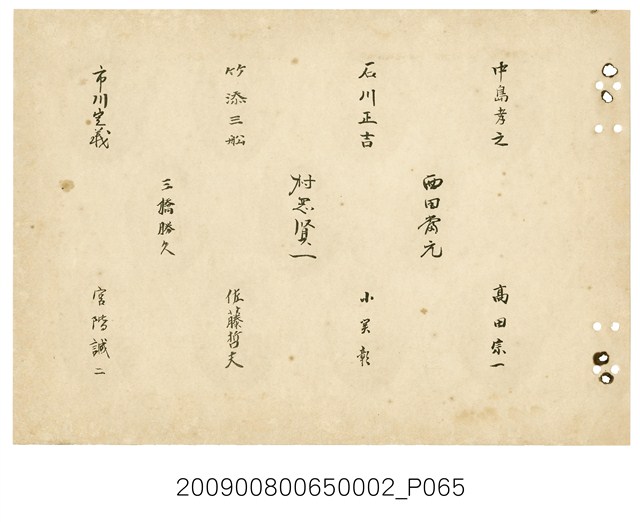 中島孝之
石川正吉
竹添三船
市川定義
西田常元
村忠賢一
三橋勝久
高田宗一
小関彰
佐藤哲夫
宮階誠二
200900800650002_P065